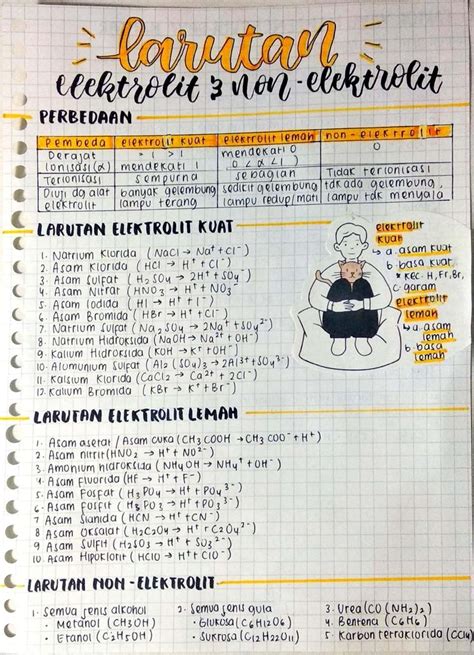 larutan
elektrolit & non-elektrolit
PERBEDAAN
Pembeda | elektrolit kuat | elektrolit lemah | non-elektrolit
Derajat Ionisasi (α) | mendekati 1 | mendekati 0 (0 < α < 1) | 0
Terionisasi | sempurna | sebagian | Tidak terionisasi
Diuji dg alat elektrolit | banyak gelembung lampu terang | sedikit gelembung lampu redup/mati | tdk ada gelembung, lampu tdk menyala
LARUTAN ELEKTROLIT KUAT
1. Natrium Klorida (NaCl → Na⁺ + Cl⁻)
2. Asam Klorida (HCl → H⁺ + Cl⁻)
3. Asam Sulfat (H₂SO₄ → 2H⁺ + SO₄⁻)
4. Asam Nitrat (HNO₃ → H⁺ + NO₃⁻)
5. Asam Iodida (HI → H⁺ + I⁻)
6. Asam Bromida (HBr → H⁺ + Cl⁻)
7. Natrium Sulfat (Na₂SO₄ → 2Na⁺ + SO₄²⁻)
8. Natrium Hidroksida (NaOH → Na⁺ + OH⁻)
9. Kalium Hidroksida (KOH → K⁺ + OH⁻)
10. Alumunium Sulfat (Al₂(SO₄)₃ → 2Al³⁺ + SO₄³⁻)
11. Kalsium Klorida (CaCl₂ → Ca²⁺ + 2Cl⁻)
12. Kalium Bromida (KBr → K⁺ + Br⁻)
elektrolit kuat
↳ a. asam kuat
b. basa kuat
* kec. H, Fr, Br,
c. garam
elektrolit lemah
↳ a. asam lemah
b. basa lemah
LARUTAN ELEKTROLIT LEMAH
1. Asam asetat / Asam cuka (CH₃COOH → CH₃COO⁻ + H⁺)
2. Asam nitrit (HNO₂ → H⁺ + NO²⁻)
3. Amonium hidroksida (NH₄OH → NH₄⁺ + OH⁻)
4. Asam Fluorida (HF → H⁺ + F⁻)
5. Asam Fosfat (H₃PO₄ → H⁺ + PO₄³⁻)
6. Asam Fosfit (H₃PO₃ → H⁺ + PO₃³⁻)
7. Asam Sianida (HCN → H⁺ + CN⁻)
8. Asam Oksalat (H₂C₂O₄ → H⁺ + C₂O₄²⁻)
9. Asam Sulfit (H₂SO₃ → H⁺ + SO₃²⁻)
10. Asam Hipoklorit (HClO → H⁺ + ClO⁻)
LARUTAN NON-ELEKTROLIT
1. Semua jenis alkohol
• Metanol (CH₃OH)
• Etanol (C₂H₅OH)
2. Semua jenis gula
• Glukosa (C₆H₁₂O₆)
• Sukrosa (C₁₂H₂₂O₁₁)
3. Urea (CO(NH₂)₂)
4. Bentena (C₆H₆)
5. Karbon tetraklorida (CCl₄)